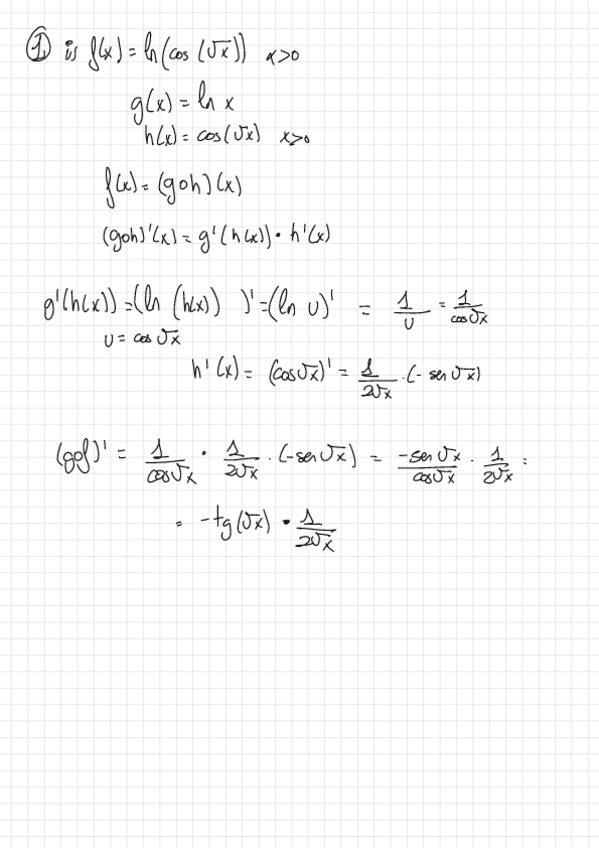 ① is f(x) = ln(cos(√x)) x>0
g(x) = ln x
h(x) = cos(√x) x>0
f(x) = (goh)(x)
(goh)'(x) = g'(h(x)) · h'(x)
g'(h(x)) = (ln (h(x)) )' = (ln u)' = 1/u = 1/cos√x
u = cos √x
h'(x) = (cos√x)' = 1/2√x · (- sen √x)
(gof)' = 1/cos√x · 1/2√x · (-sen √x) = -sen √x/cos√x · 1/2√x =
= -tg(√x) · 1/2√x